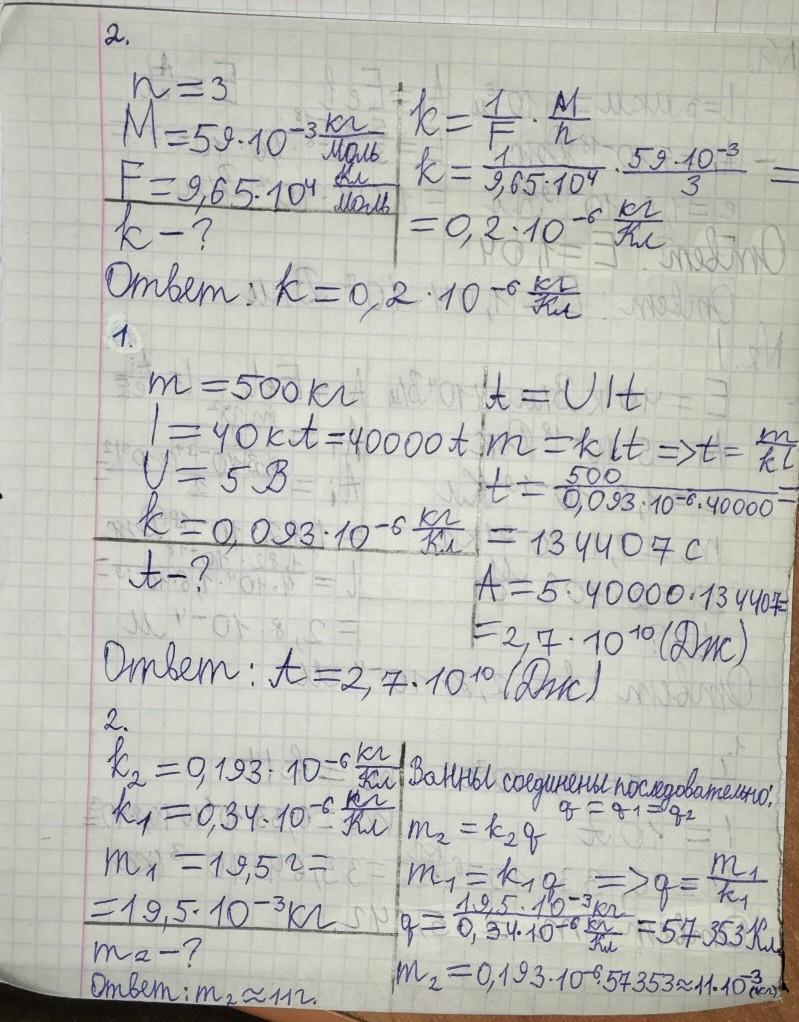 2.
n = 3
M = 59·10⁻³ кг/моль
F = 9,65·10⁴ Кл/моль
k – ?
k = 1/F · M/n
k = 1/(9,65·10⁴) · (59·10⁻³)/3 =
= 0,2·10⁻⁶ кг/Кл
Ответ: k = 0,2·10⁻⁶ кг/Кл
1.
m = 500 кг
I = 40 кt = 40000 t
U = 5 В
k = 0,093·10⁻⁶ кг/Кл
t – ?
t = UIt
m = kIt => t = m/kI
t = 500/(0,093·10⁻⁶·40000) =
= 134407 с
A = 5·40000·134407 =
= 2,7·10¹⁰ (Дж)
Ответ: t = 2,7·10¹⁰ (Дж)
2.
k₂ = 0,193·10⁻⁶ кг/Кл
k₁ = 0,34·10⁻⁶ кг/Кл
m₁ = 19,5 г =
= 19,5·10⁻³ кг
m₂ – ?
Ванны соединены последовательно:
q = q₁ = q₂
m₂ = k₂q
m₁ = k₁q => q = m₁/k₁
q = (19,5·10⁻³ кг)/(0,34·10⁻⁶ кг/Кл) = 57353 Кл
m₂ = 0,193·10⁻⁶·57353 ≈ 11·10⁻³ (кг)
Ответ: m₂ ≈ 11 г.